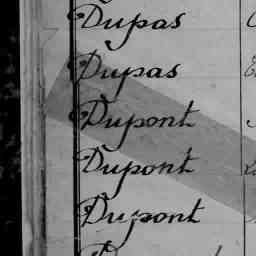 Dupas
Dupas
Dupont
Dupont
Dupont